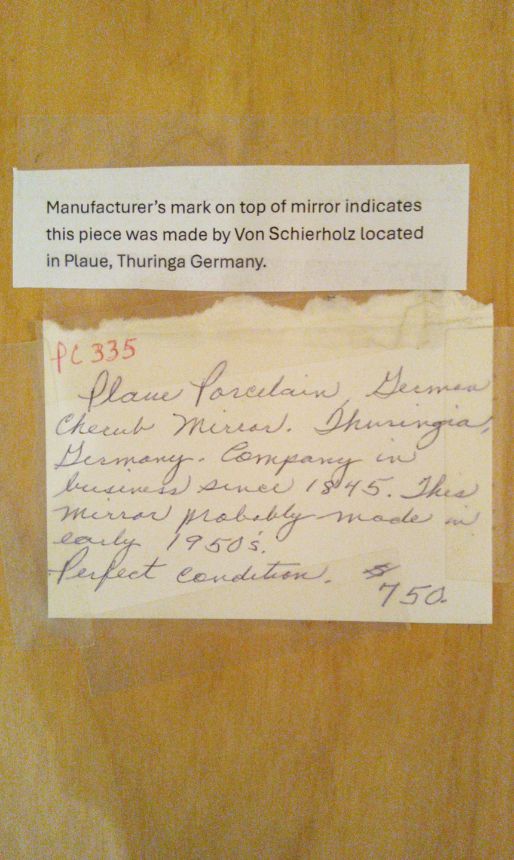 Manufacturer's mark on top of mirror indicates
this piece was made by Von Schierholz located
in Plaue, Thuringa Germany.
PC 335
Plaue Porcelain, German
Cherub Mirror. Thuringia,
Germany. Company in
business since 1845. This
mirror probably made in
early 1950's.
Perfect condition. $
750.